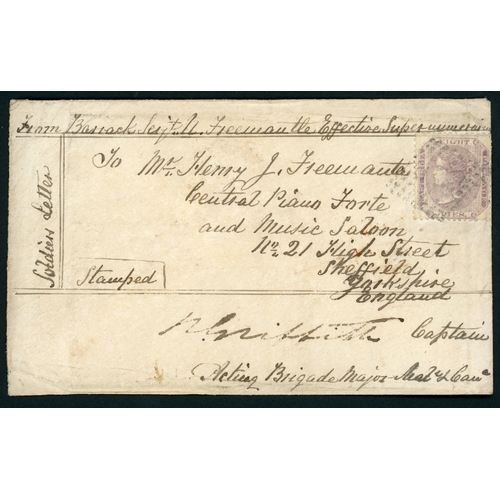 From Barrack Serjt. U. Freemantle Effective Supernumerary
Soldiers Letter
To Mr. Henry J. Freemantle
Central Piano Forte
and Music Saloon
No. 21 High Street
Sheffield
Yorkshire
England
Stamped
Captain
Acting Brigade Major